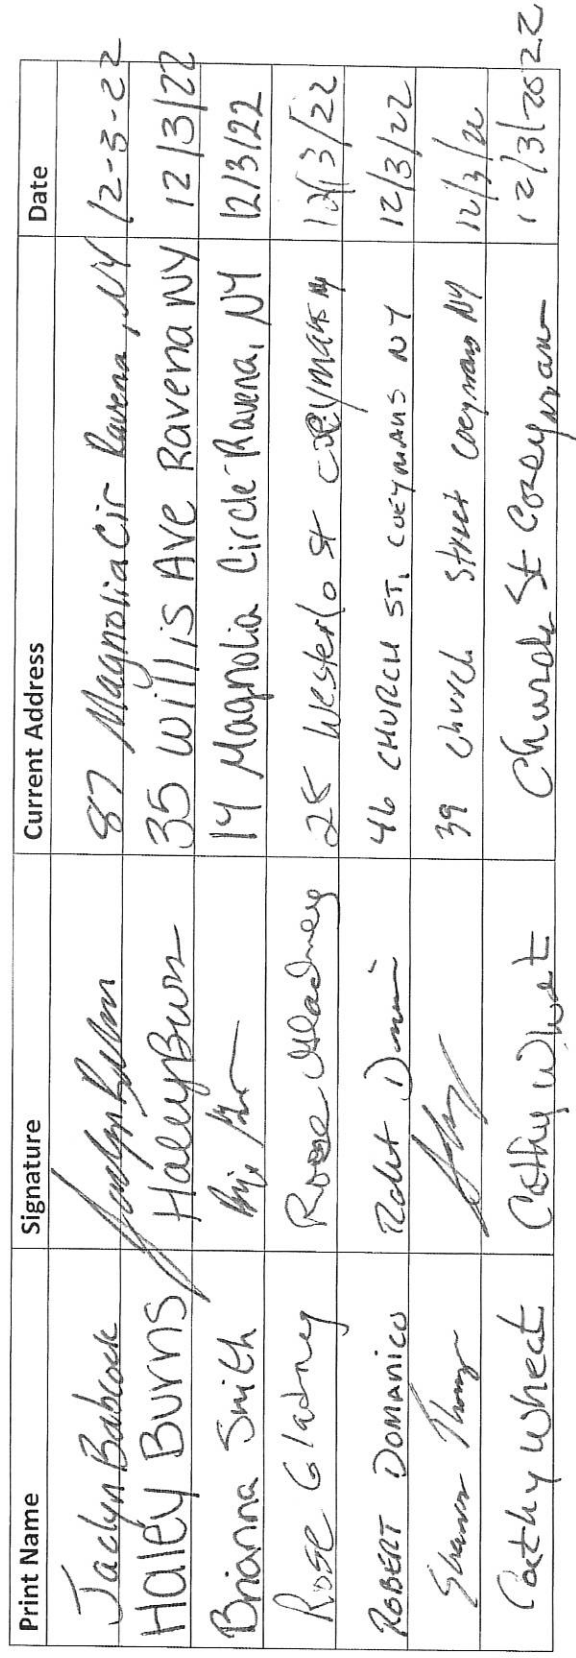 Print Name Signature Current Address Date
Jaclyn Babcock 87 Magnolia Cir Ravena, NY 12-3-22
Haley Burns Haley Burns 35 Willis Ave Ravena NY 12/3/22
Brianna Smith 14 Magnolia Circle Ravena, NY 12/3/22
Rose Gladney Rose Gladney 28 Westerlo St Coeymans NY 12/3/22
ROBERT DOMANICO 46 CHURCH ST. COEYMANS NY 12/3/22
39 Church Street Coeymans NY 12/3/22
Cathy Wheat Cathy Wheat Church St Coeymans 12/3/2022